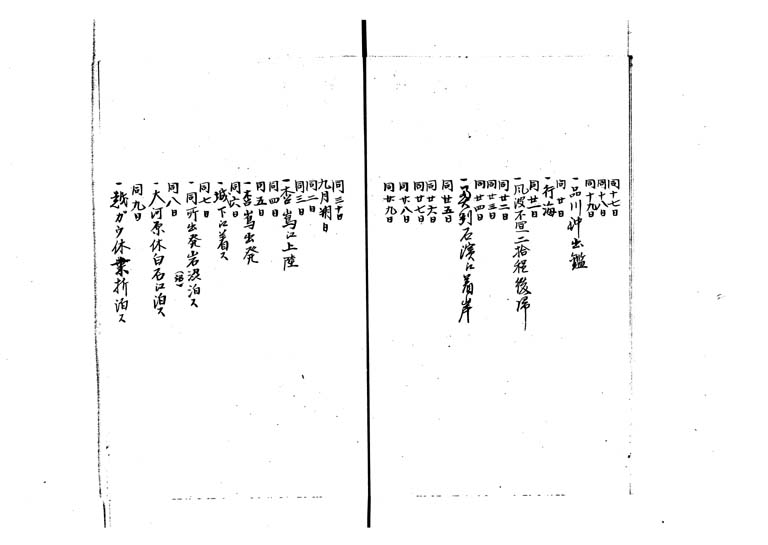 同十七日
同十八日
同十九日
一品川沖出鑑
同廿日
一行海
同廿一日
一風波不宜二拾程後帰
同廿二日
同廿三日
同廿四日
利石濱江着岸
同廿五日
同廿六日
同廿七日
同廿八日
同廿九日
同三十日
九月朔日
同二日
同三日
一嶌江上陸
同四日
同五日
一嶌出発
同六日
一城下江着ス
同七日
一同所出発岩沼泊ス
同八日
一大河原休白石江泊ス
同九日
一越カウ休桑折泊ス